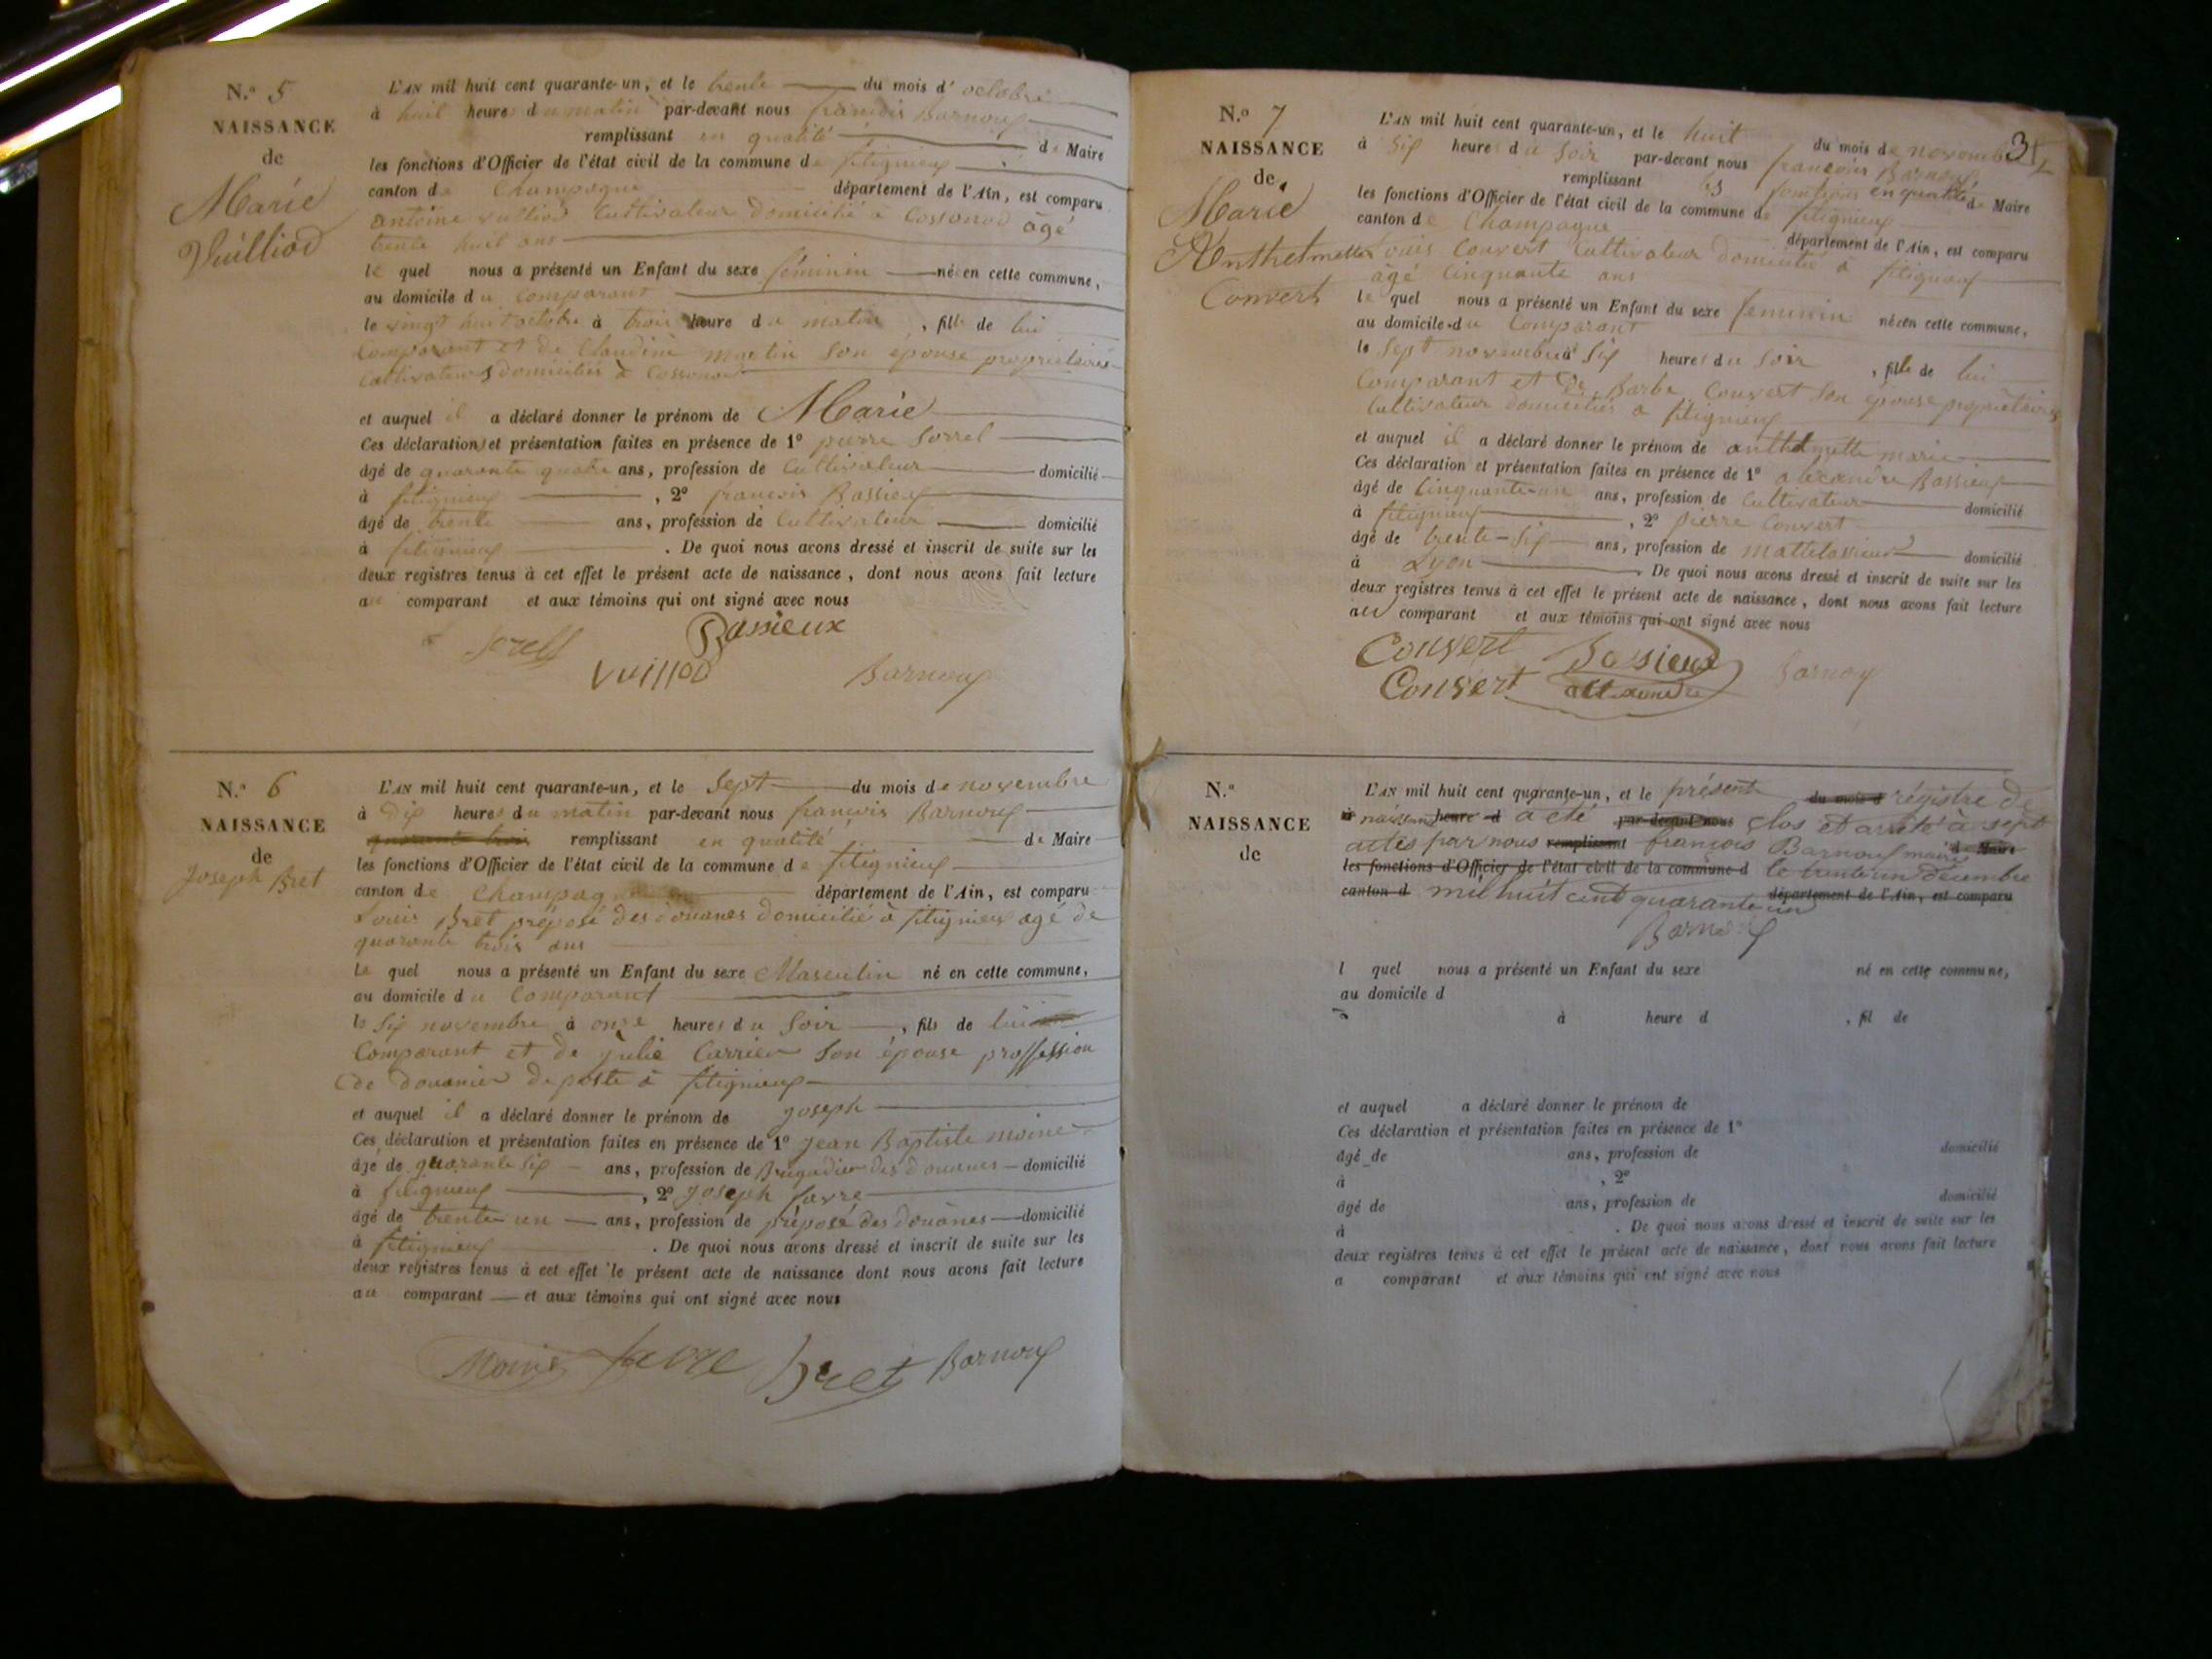 N.º 5
NAISSANCE
de
Marie
Vuilliod
L'AN mil huit cent quarante-un, et le trente du mois d'octobre
à huit heures du matin par-devant nous françois Barnoux
remplissant en qualité de Maire
les fonctions d'Officier de l'état civil de la commune de fitignieux
canton de Champagne département de l'Ain, est comparu
antoine vulliod Cultivateur domicilié à Cossonod âgé
trente huit ans
le quel nous a présenté un Enfant du sexe féminin née en cette commune,
au domicile du Comparant
le vingt huit octobre à trois heure du matin, fille de lui
Comparant et de Claudine martin Son épouse propriétaires
Cultivateurs domiciliés à Cossonod
et auquel il a déclaré donner le prénom de Marie
Ces déclarations et présentation faites en présence de 1º pierre Sorrel
âgé de quarante quatre ans, profession de Cultivateur domicilié
à fitignieux, 2º françois Bassieux
âgé de trente ans, profession de Cultivateur domicilié
à fitignieux. De quoi nous avons dressé et inscrit de suite sur les
deux registres tenus à cet effet le présent acte de naissance, dont nous avons fait lecture
au comparant et aux témoins qui ont signé avec nous
Bassieux
Sorell
Vuillod Barnoux
N.º 6
NAISSANCE
de
Joseph Bret
L'AN mil huit cent quarante-un, et le Sept du mois de novembre
à dix heures du matin par-devant nous françois Barnoux
quarante trois remplissant en qualité de Maire
les fonctions d'Officier de l'état civil de la commune de fitignieux
canton de Champagne département de l'Ain, est comparu
Louis Bret préposé des douanes domicilié à fitignieux agé de
quarante trois ans
Le quel nous a présenté un Enfant du sexe Masculin né en cette commune,
au domicile du Comparant
le Six novembre à onze heures du Soir, fils de lui
Comparant et de Julie Carrier Son épouse proffession
de douanier de poste à fitignieux
et auquel il a déclaré donner le prénom de Joseph
Ces déclaration et présentation faites en présence de 1º Jean Baptiste moine
âgé de quarante Six ans, profession de Brigadier des douanes domicilié
à fitignieux, 2º Joseph favre
âgé de trente un ans, profession de préposé des douanes domicilié
à fitignieux. De quoi nous avons dressé et inscrit de suite sur les
deux registres tenus à cet effet le présent acte de naissance dont nous avons fait lecture
au comparant et aux témoins qui ont signé avec nous
Moine favre Bret Barnoux
N.º 7
NAISSANCE
de
Marie
Anthelmette
Convert
L'AN mil huit cent quarante-un, et le huit du mois de novembre
à Six heures du Soir par-devant nous françois Barnoux
remplissant les fonctions en qualité de Maire
les fonctions d'Officier de l'état civil de la commune de fitignieux
canton de Champagne département de l'Ain, est comparu
Louis Convert Cultivateur domicilié à fitignieux
âgé Cinquante ans
le quel nous a présenté un Enfant du sexe feminin née en cette commune,
au domicile du Comparant
le Sept novembre à Six heures du Soir, fille de lui
Comparant et de Barbe Convert Son épouse propriétaires
Cultivateur domiciliés à fitignieux
et auquel il a déclaré donner le prénom de anthelmette marie
Ces déclaration et présentation faites en présence de 1º alexandre Bassieux
âgé de Cinquante-un ans, profession de Cultivateur domicilié
à fitignieux, 2º pierre Convert
âgé de trente-Six ans, profession de mattelassieur domicilié
à Lyon. De quoi nous avons dressé et inscrit de suite sur les
deux registres tenus à cet effet le présent acte de naissance, dont nous avons fait lecture
au comparant et aux témoins qui ont signé avec nous
Convert Bassieux Barnoux
Convert allexandre
N.º
NAISSANCE
de
L'AN mil huit cent quarante-un, et le présent du mois d régistre de
à naissance heure d a été par-devant nous clos et arrêté à sept
actes par nous remplissant françois Barnoux maire d Maire
les fonctions d'Officier de l'état civil de la commune d le trente un décembre
canton d mil huit cent quarante un département de l'Ain, est comparu
Barnoux
l quel nous a présenté un Enfant du sexe né en cette commune,
au domicile d
à heure d , fil de
et auquel a déclaré donner le prénom de
Ces déclaration et présentation faites en présence de 1º
âgé de ans, profession de domicilié
à , 2º
âgé de ans, profession de domicilié
à . De quoi nous avons dressé et inscrit de suite sur les
deux registres tenus à cet effet le présent acte de naissance, dont nous avons fait lecture
a comparant et aux témoins qui ont signé avec nous